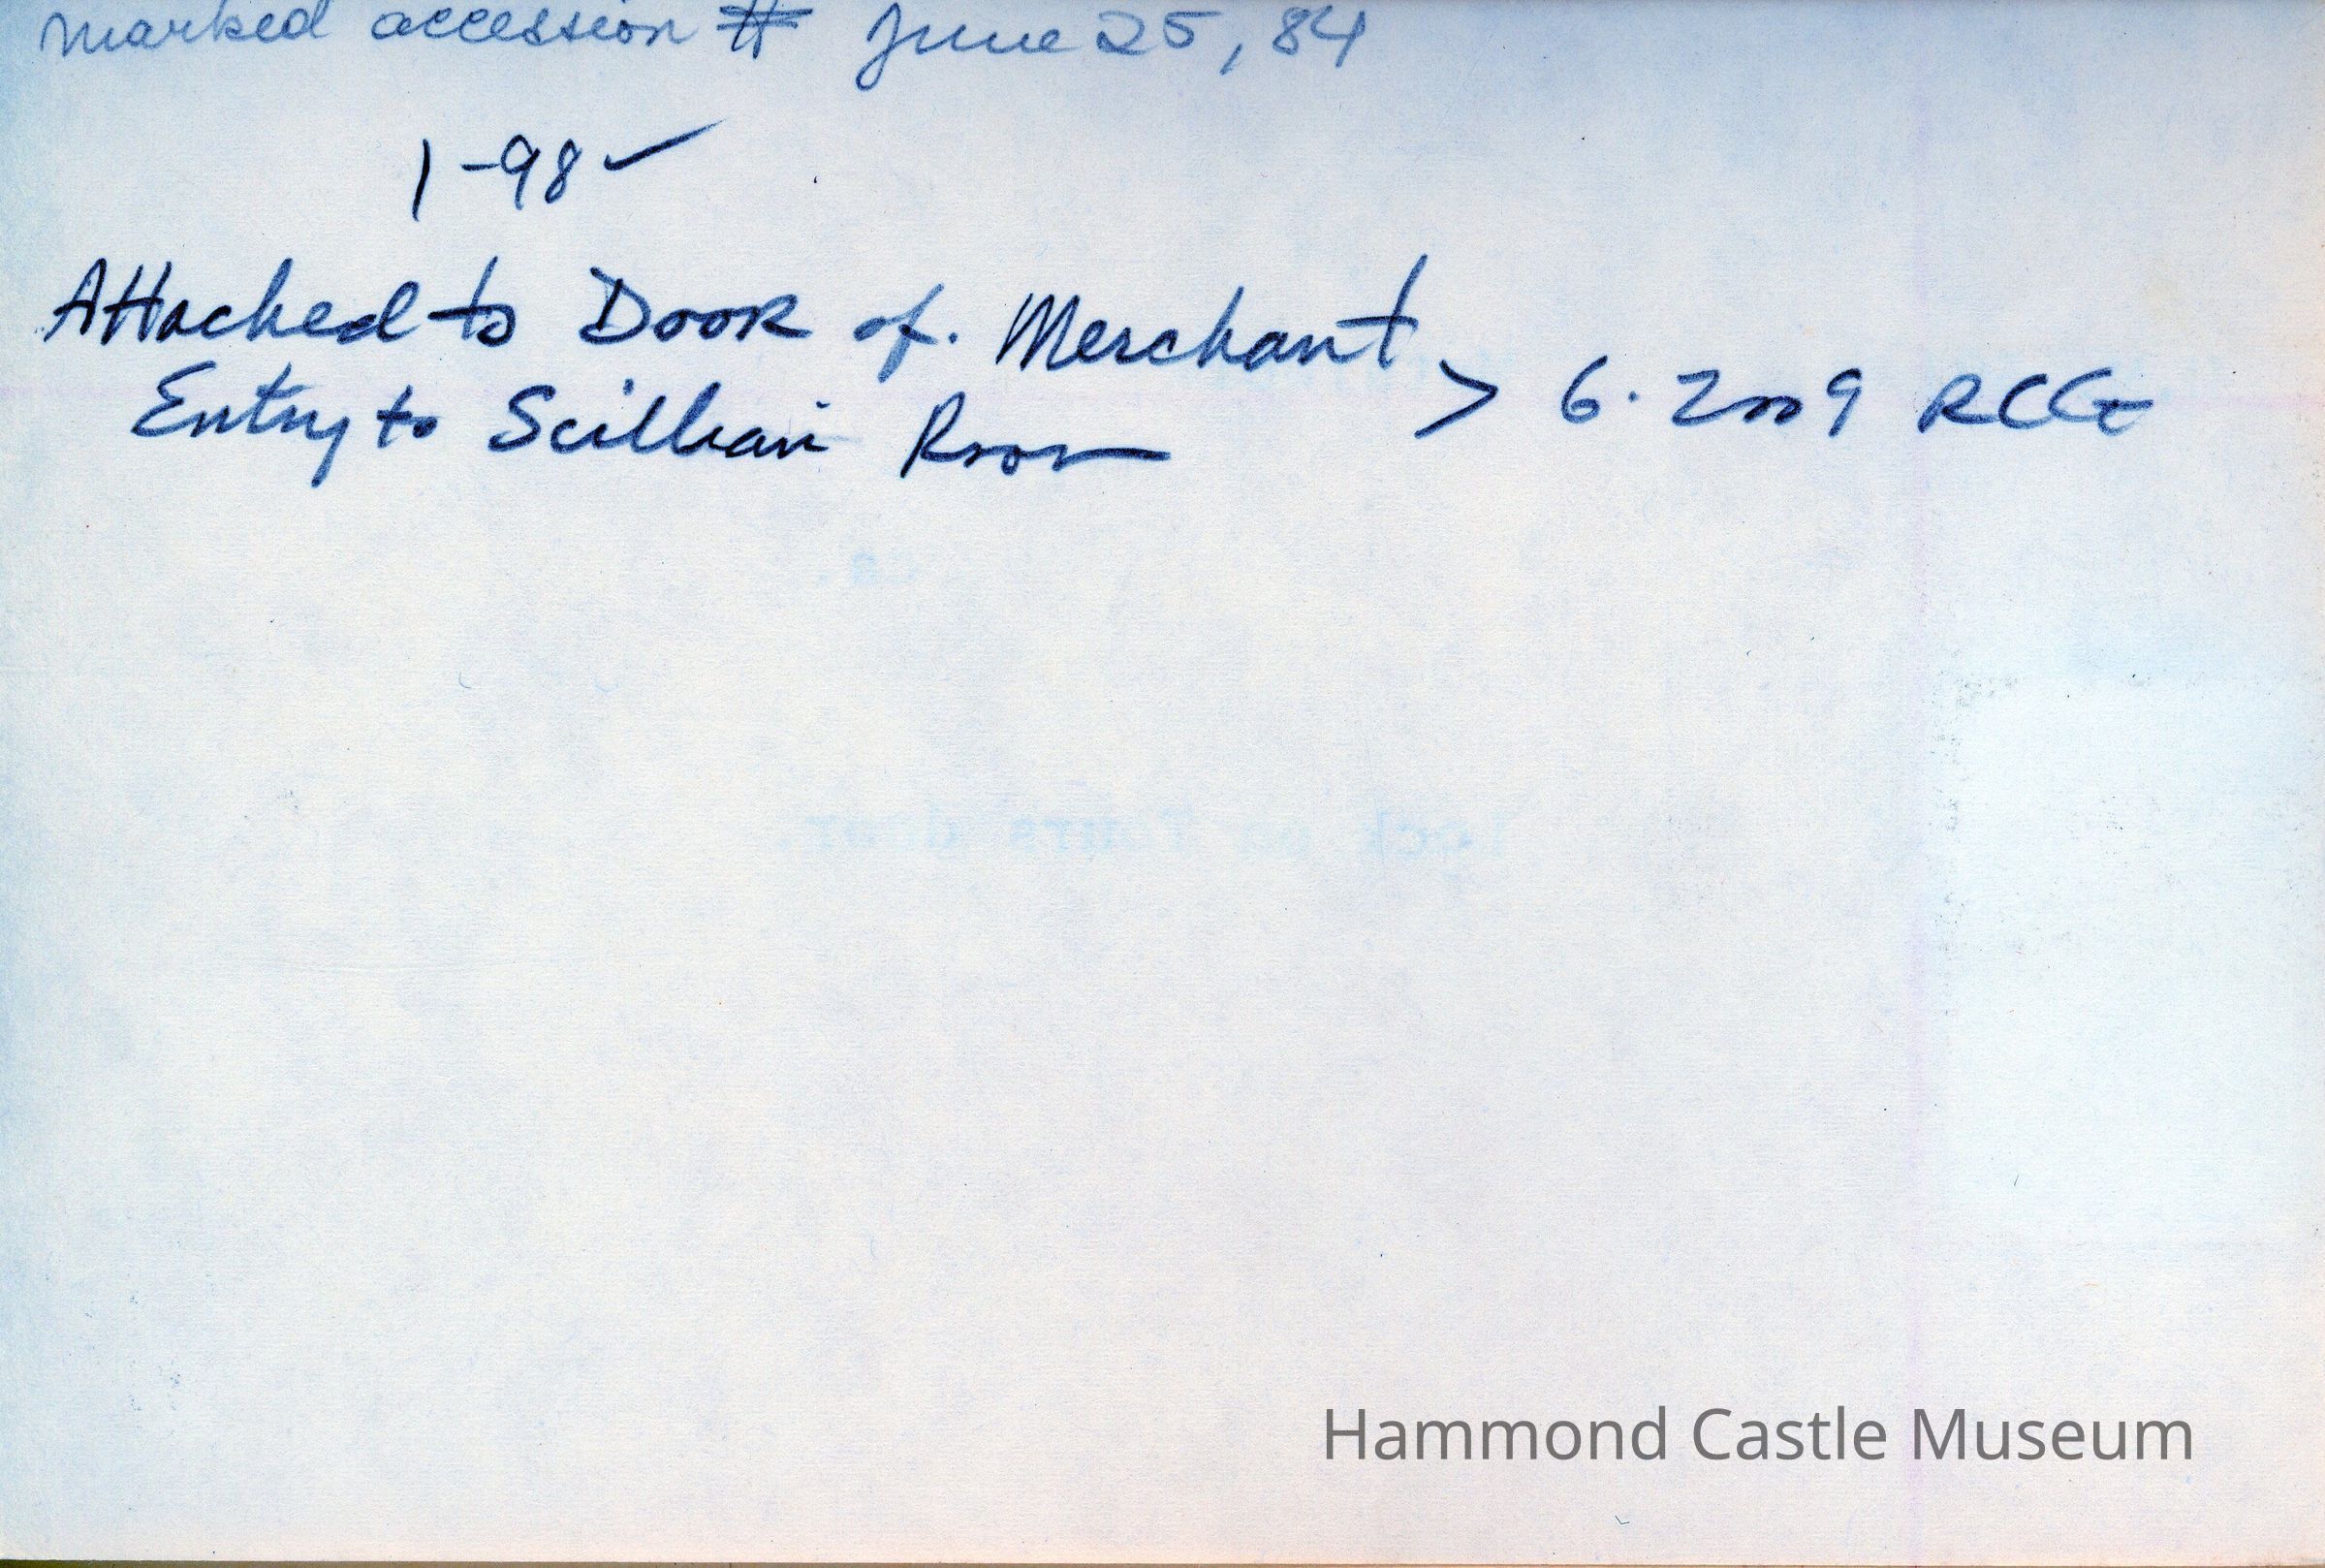 marked accession # June 25, 84
1-98 ✓
Attached to Door of. Merchant
Entry to Scillian Room > 6.2009 RCG
lock on Tours door.
Hammond Castle Museum